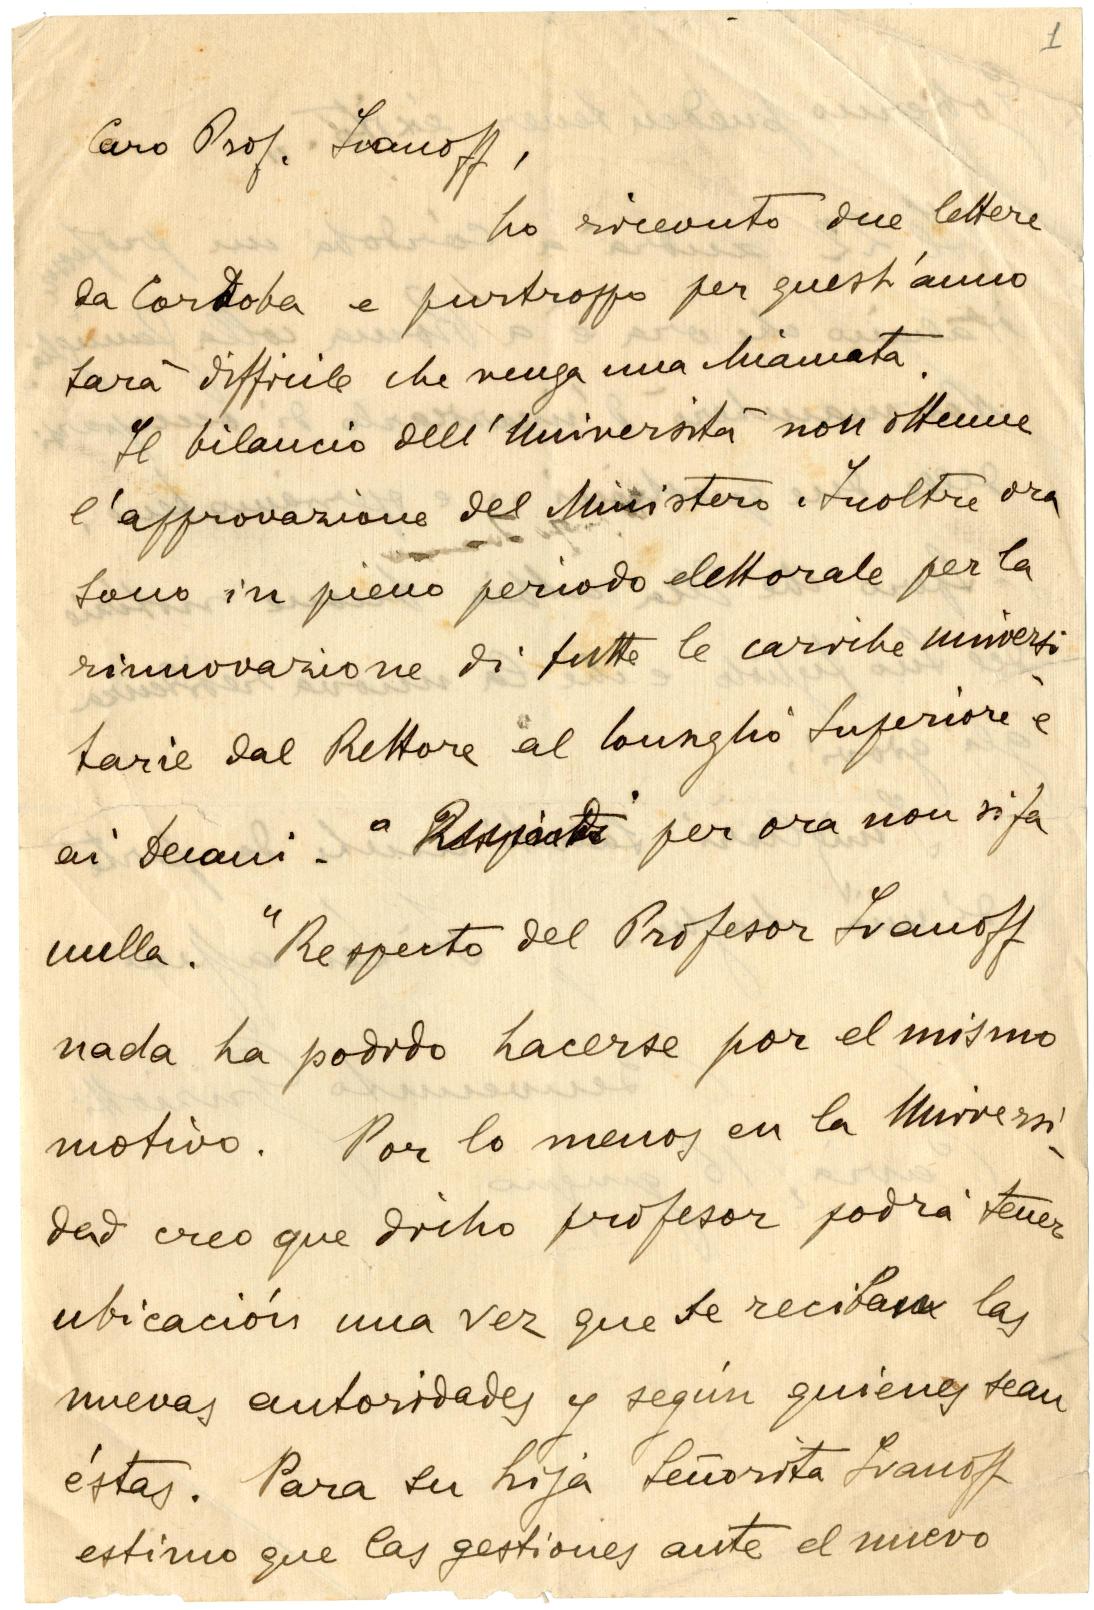 1
Caro Prof. Ivanoff,
ho ricevuto due lettere
da Cordoba e purtroppo per quest'anno
sarà difficile che venga una chiamata.
Il bilancio dell'Università non ottenne
l'approvazione del Ministero. Inoltre ora
sono in pieno periodo elettorale per la
rinnovazione di tutte le cariche universi
tarie dal Rettore al Consiglio Superiore e
ai Decani - per ora non si fa
nulla. "Respecto del Profesor Ivanoff
nada ha podido hacerse por el mismo
motivo. Por lo menos en la Universi-
dad creo que dicho profesor podrá tener
ubicación una vez que se reciban las
nuevas autoridades y según quienes sean
éstas. Para su hija Señorita Ivanoff
estimo que las gestiones ante el nuevo